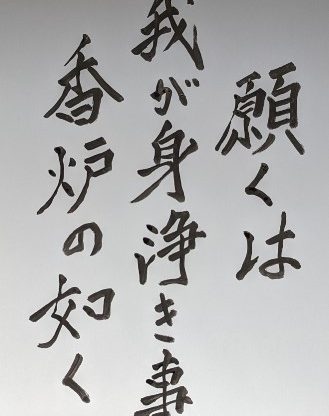 願くは
我が身浄き事
香炉の如く